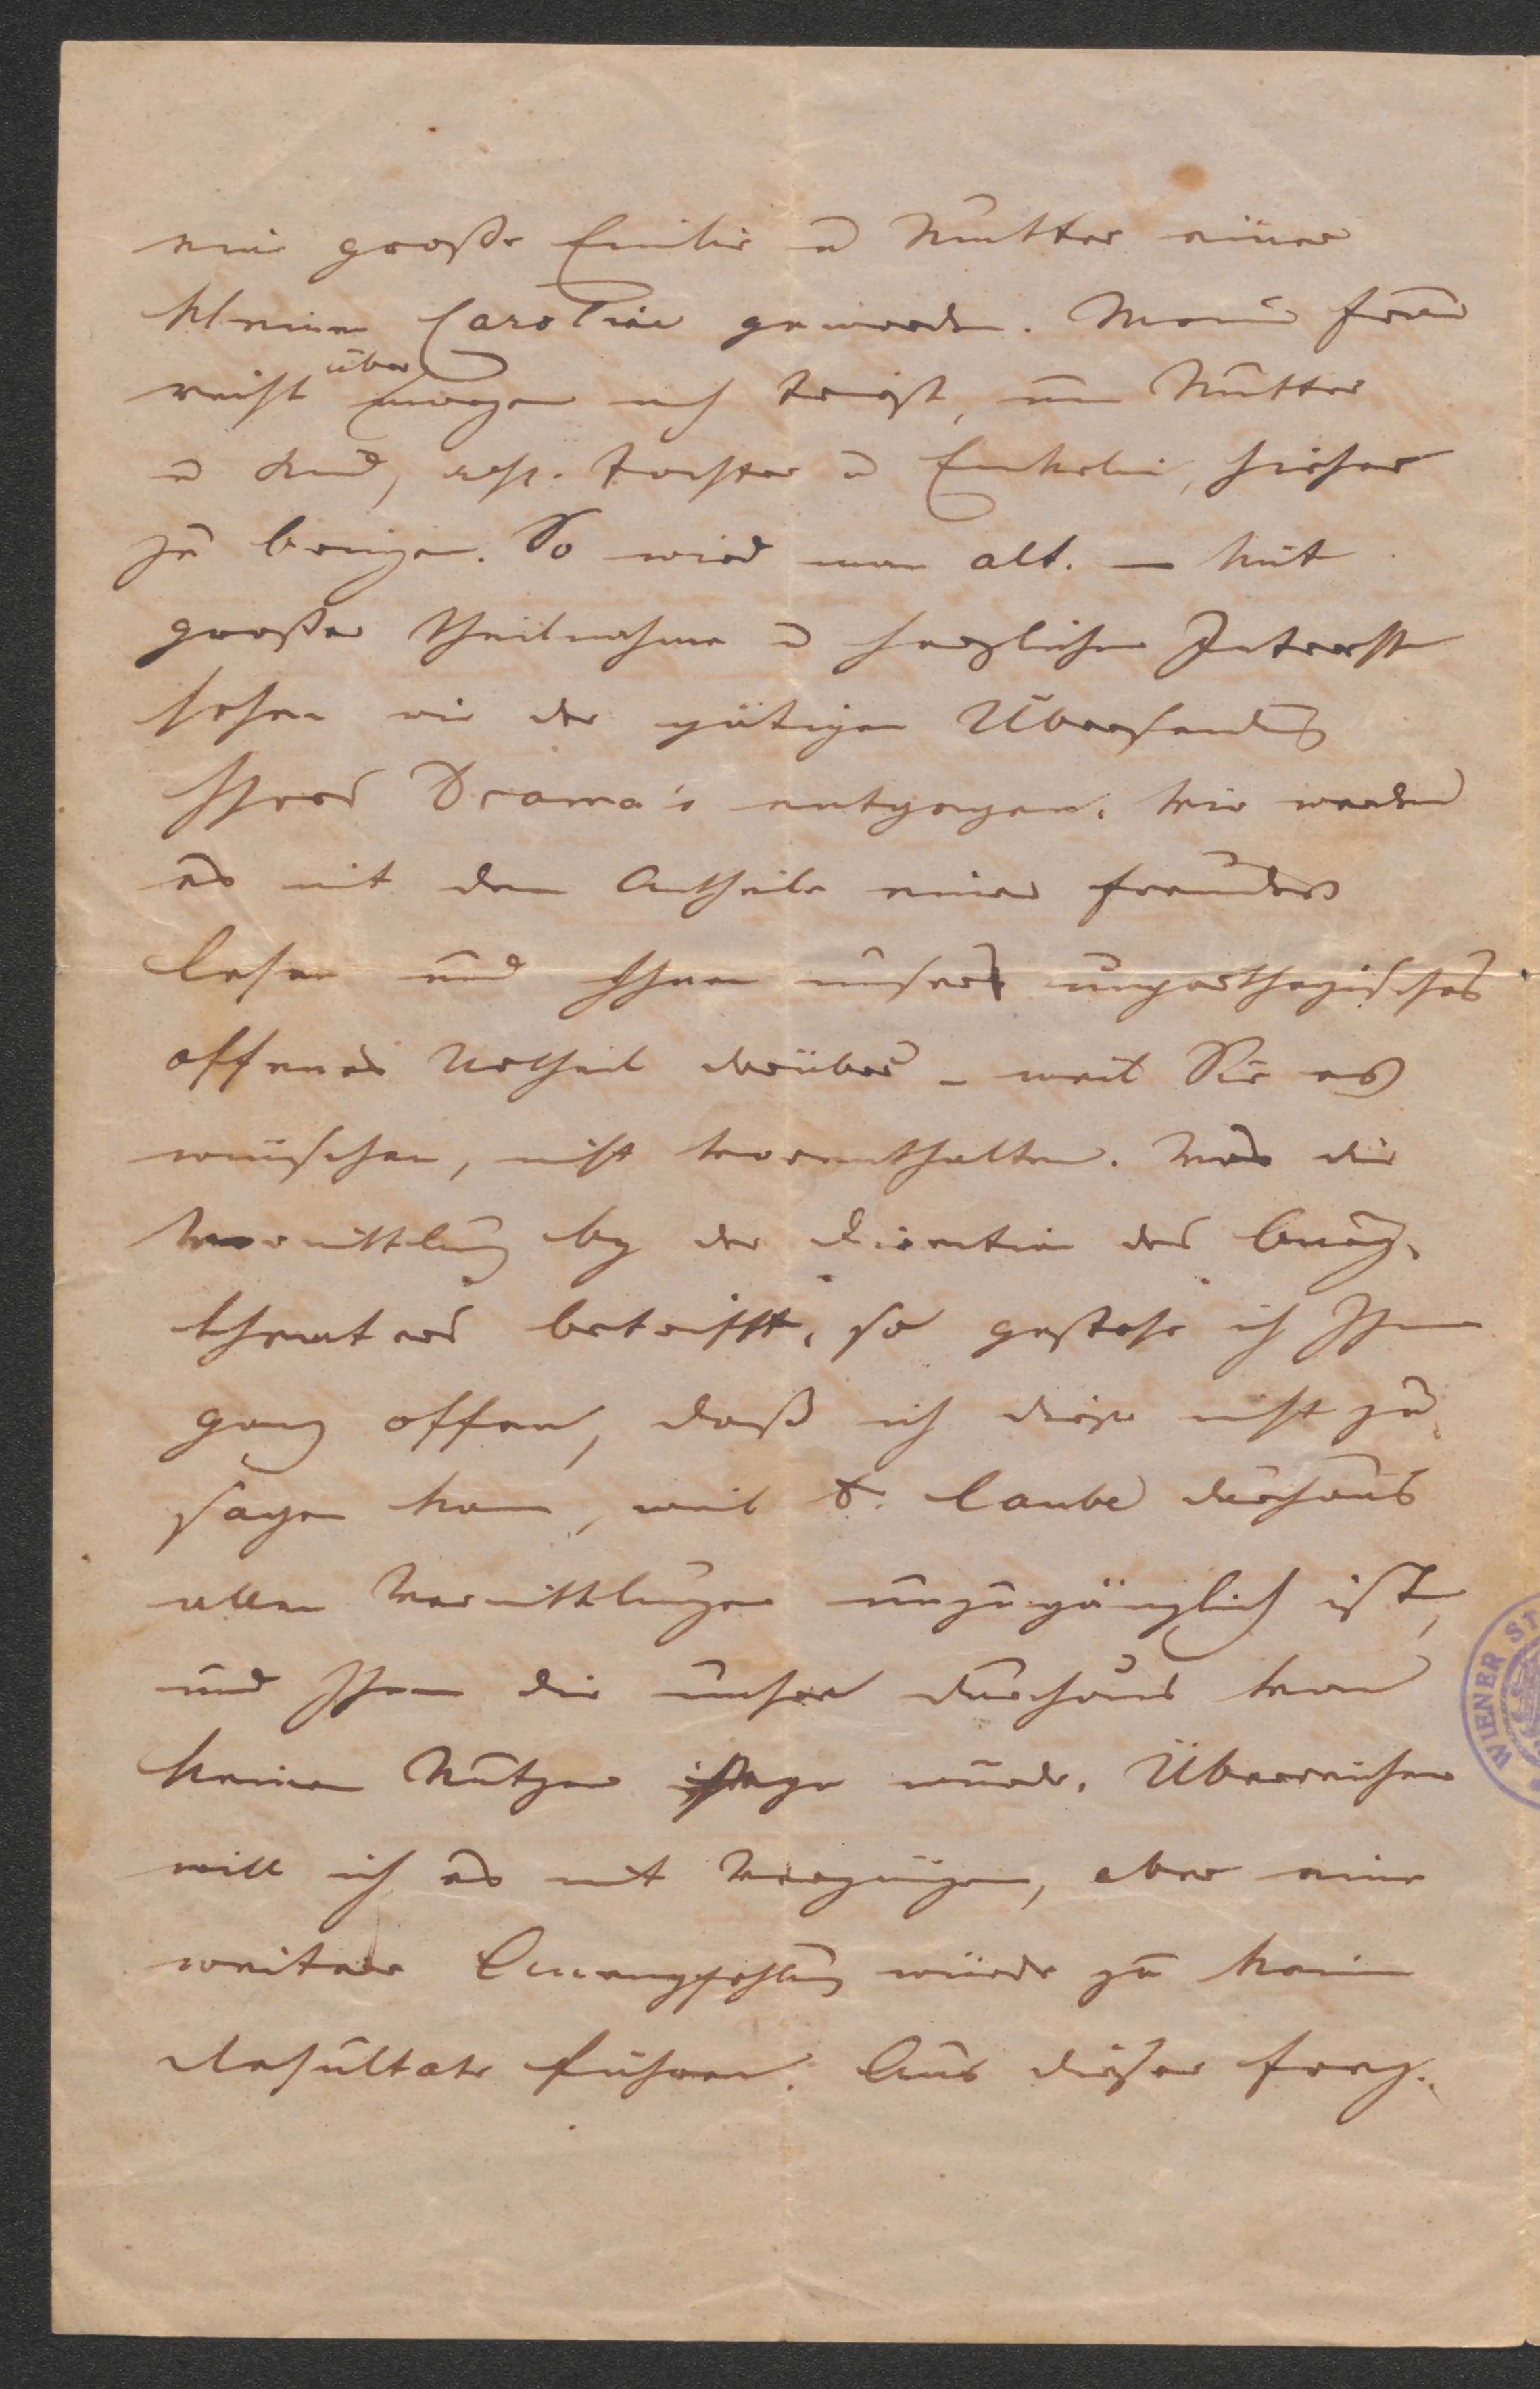 eine große Emilie u Mutter einer
kleinen Caroline geworden. Meine Frau
reist übermorgen nach Triest, um Mutter
u Kind, resp. Tochter u Enkelin, hieher
zu bringen. So wird man alt. – Mit
großer Theilnahme u herzlichem Interesse
sehen wir der gütigen Übersendung
Ihres Drama's entgegen. Wir werden
es mit dem Antheile eines Freundes
lesen und Ihnen unser unpartheyisches
offenes Urtheil darüber – weil Sie es
wünschen, nicht vorenthalten. Was die
Vermittlung bey der Direction des Burg-
theaters betrifft, so gestehe ich Ihnen
ganz offen, daß ich diese nicht zu-
sagen kann, weil Dr. Laube durchaus
allen Vermittlungen unzugänglich ist,
und Ihnen die unsere durchaus von
keinem Nutzen seyn würde. Überreichen
will ich es mit Vergnügen, aber eine
weitere Anempfehlung würde zu keinem
Resultate führen. Aus dieser
WIENER ST